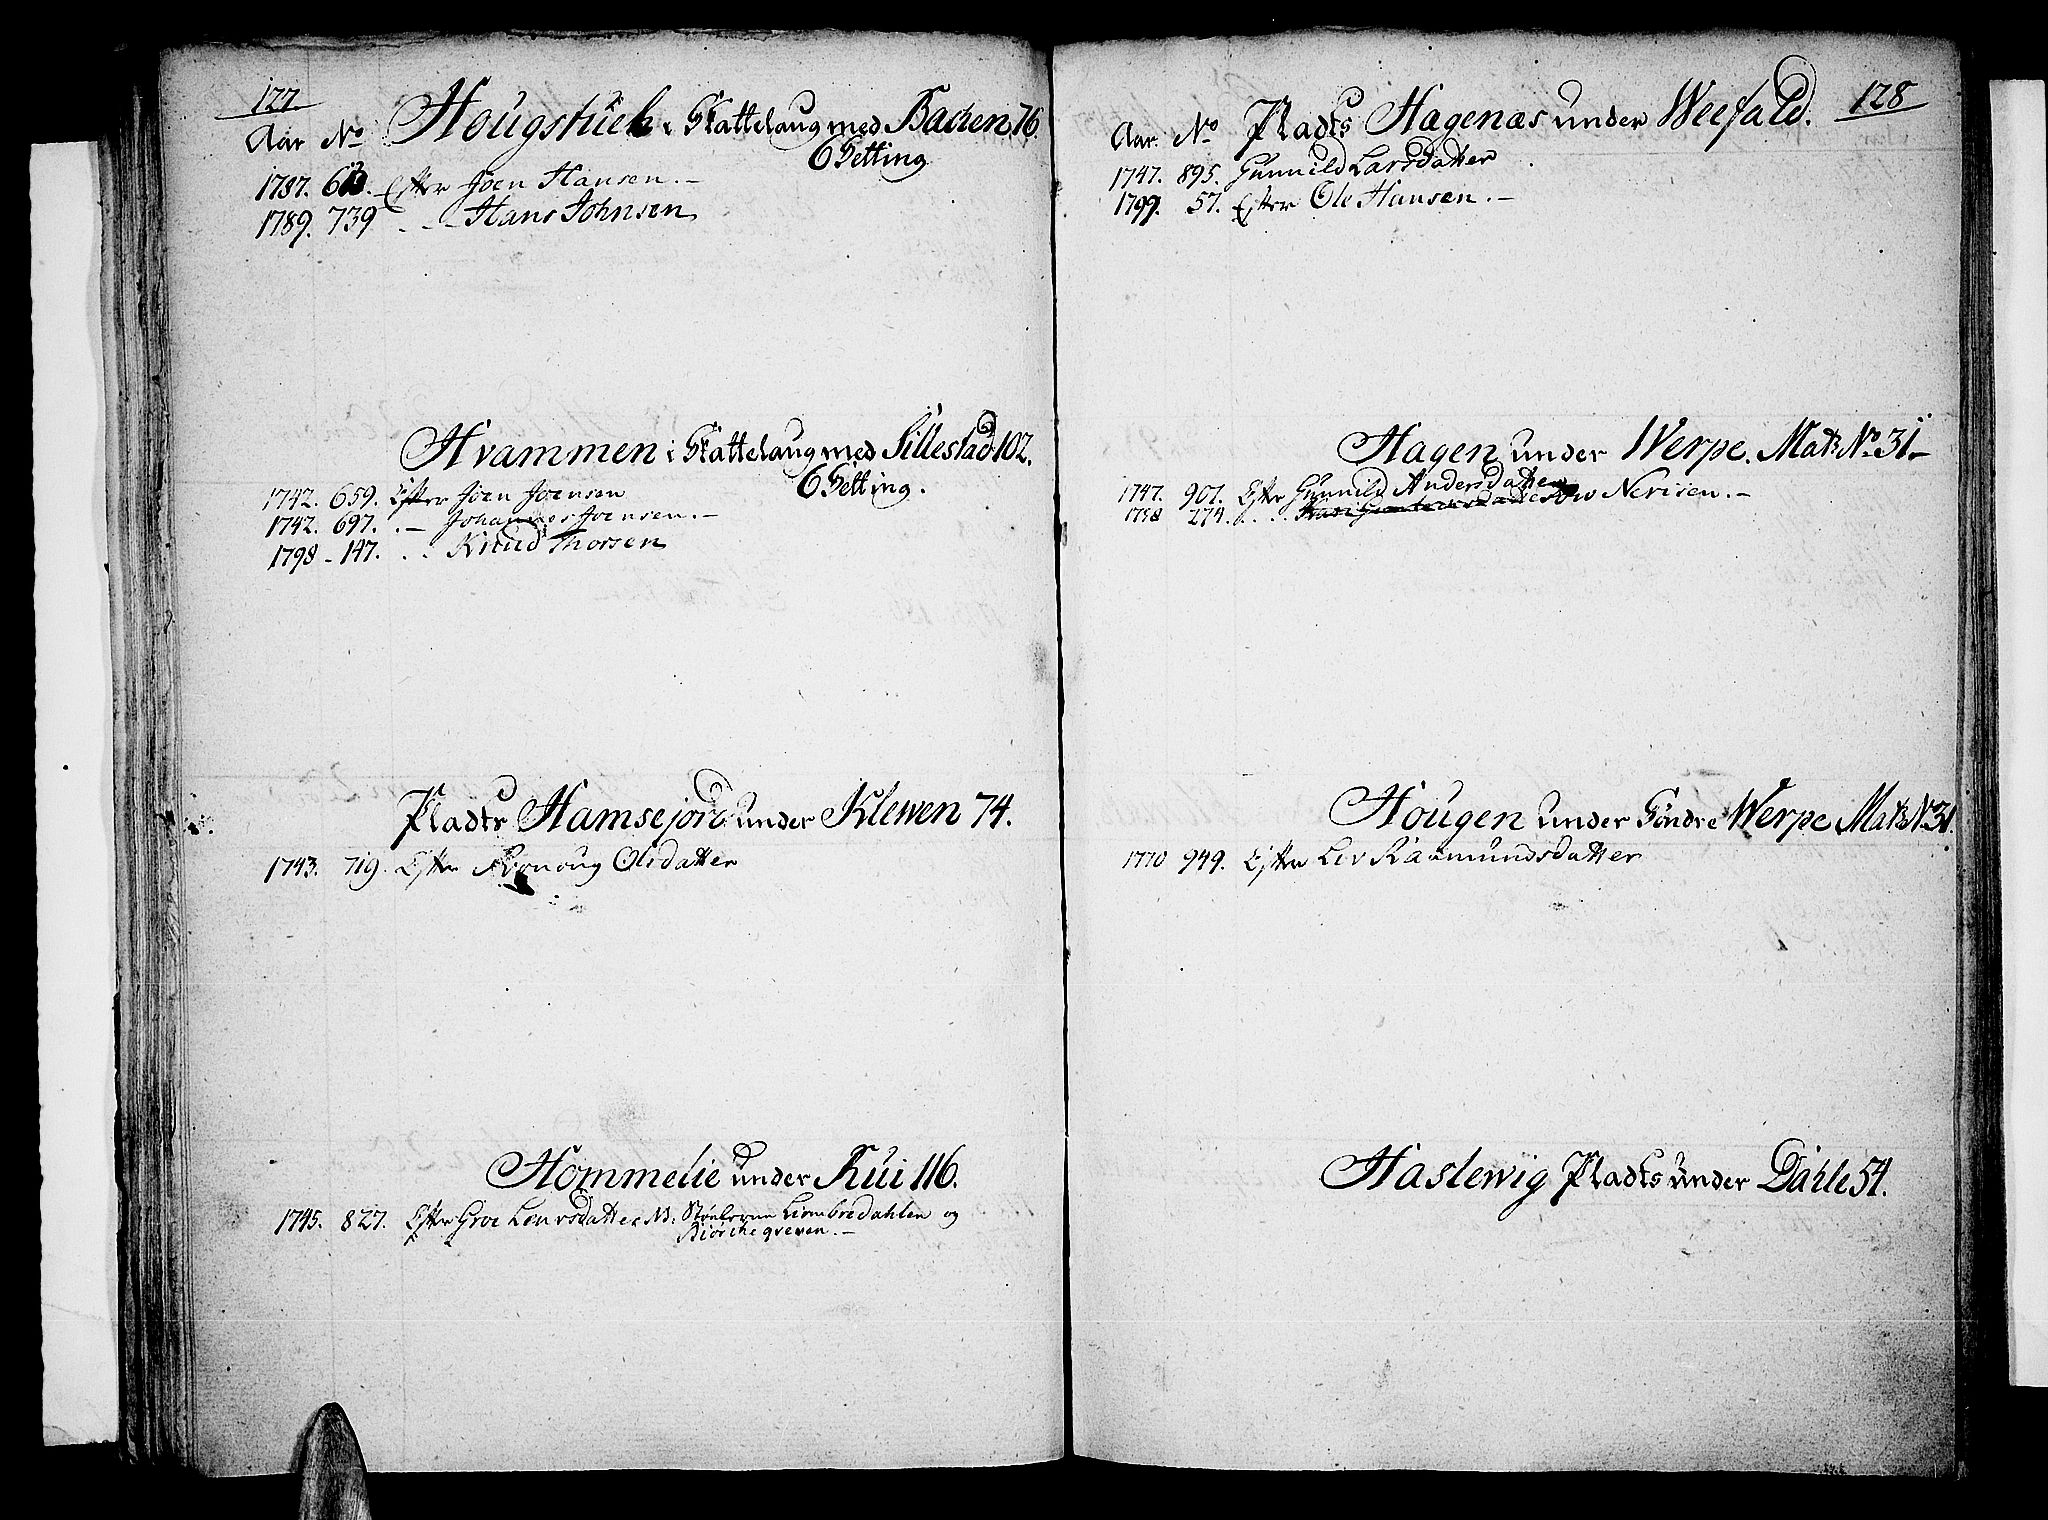 127
Aar No Hougstuch i Skattelaug med Backen 76.
6 Setting
1787. Efter Joen Hansen. —
1789. 739 . . Hans Johnsen
Hvammen i Skattelaug med Sillestad 102.
6 Setting.
1742. 659. Efter Joen Joensen
1742. 697. . — Johannes Joensen. —
1798 - 147. . . Knud Thorsen
Pladts Hamsejord under Klewen 74.
1743. 719. Efter Olsdatter
Hommelie under Kui 116.
1745. 827. Efter Groe og
128
Aar. No Pladts Hagenæs under Weefald.
1747. 895. Gunnild Larsdatter
1799. 57. Efter Ole Hansen. —
Hagen under Werpe. Matr No. 31 —
1747. 907. Efter Gunnild Andersdatter
1758 274. . . . Nerisen. —
Hougen under Søndre Werpe Matr No. 31.
1770 949. Efter Liv Rasmundsdatter
Haslewig Pladts under Dahle 54.